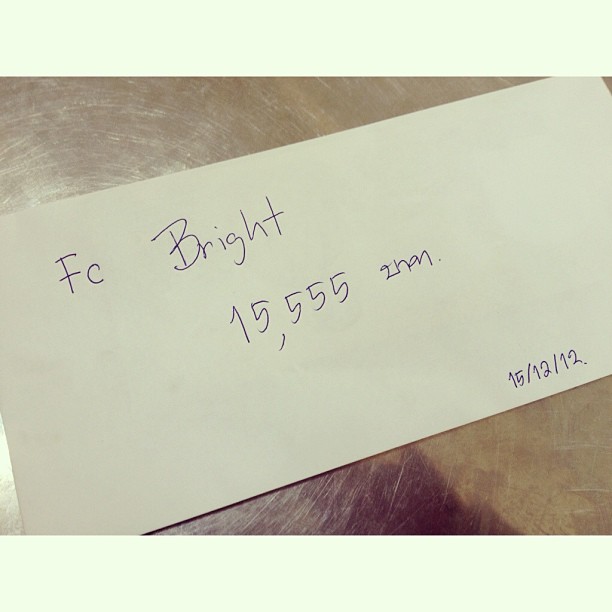 Fc Bright
15,555 บาท.
15/12/12.